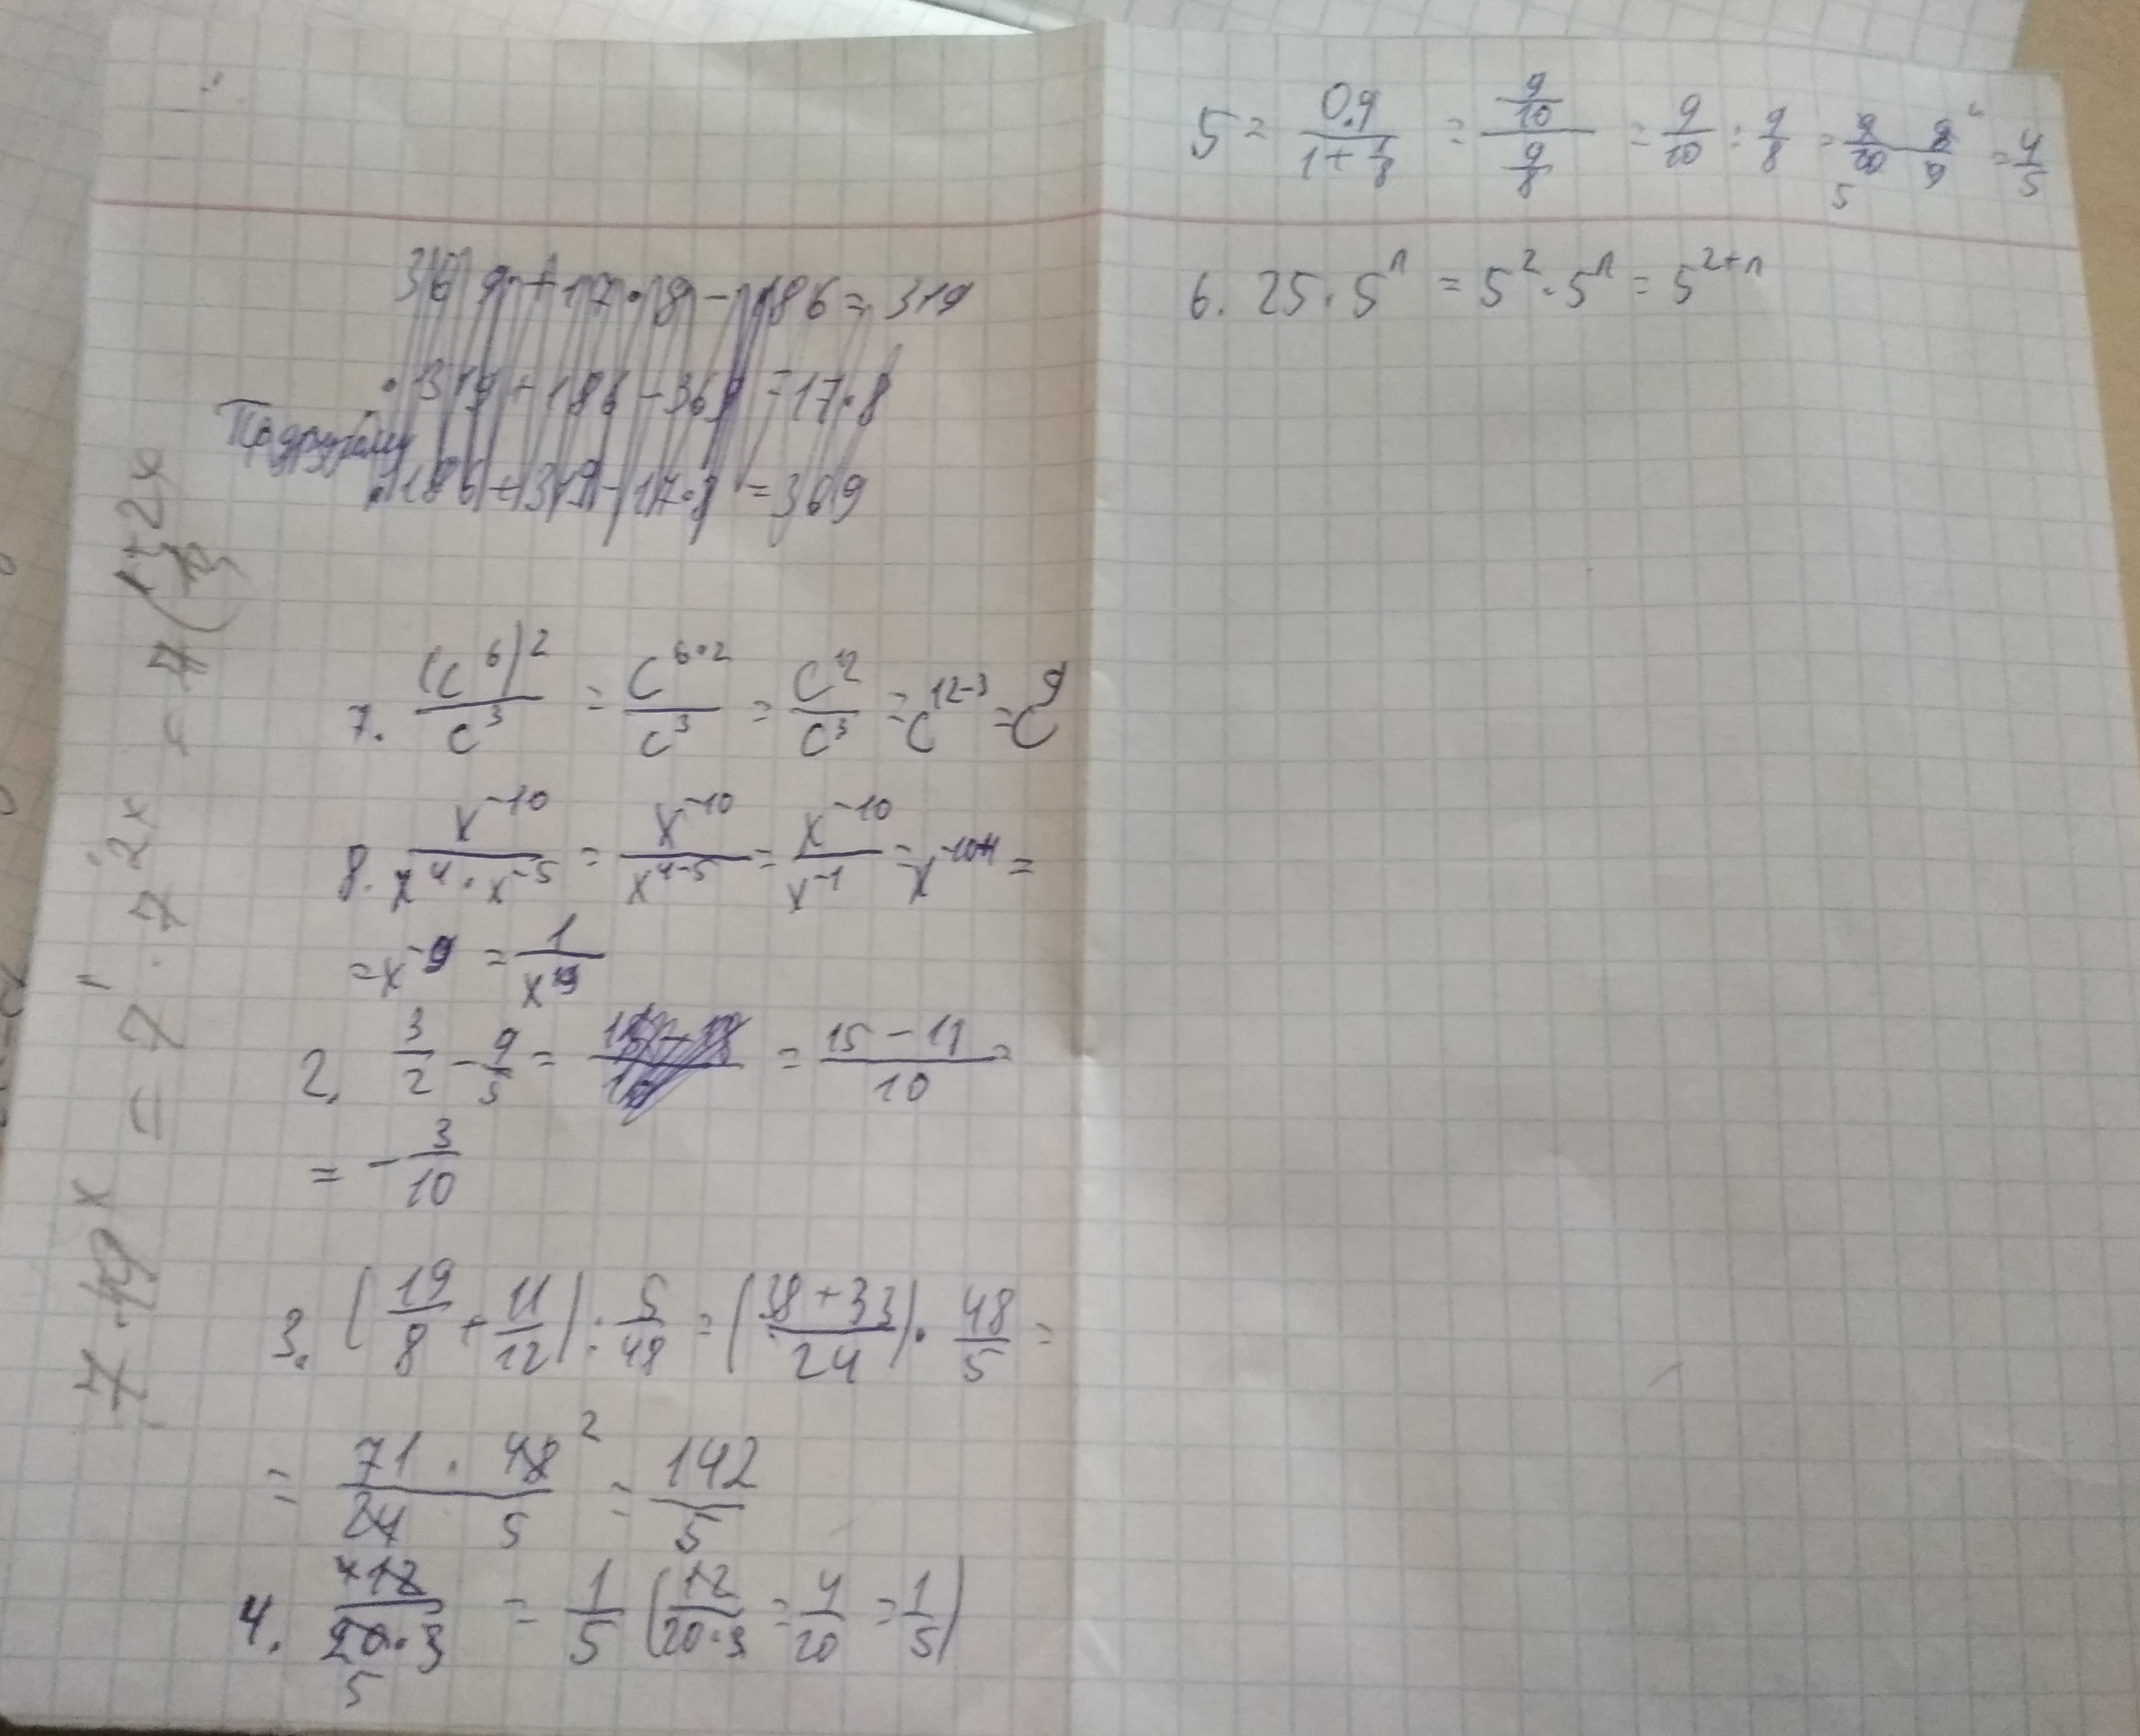 369 + 17·8 - 186 = 319
· 319 + 186 - 369 = 17·8
По другому
· 186 + 319 - 17·8 = 369
7. (c^6)^2/c^3 = c^{6·2}/c^3 = c^12/c^3 = c^{12-3} = c^9
8. x^{-10}/(x^4 · x^{-5}) = x^{-10}/x^{4-5} = x^{-10}/x^{-1} = x^{-10+1} =
= x^{-9} = 1/x^9
2. 3/2 - 9/5 = = (15 - 18)/10 =
= - 3/10
3. (19/8 + 11/12) : 5/48 = ((38 + 33)/24) · 48/5 =
= 71/24 · 48/5 2 = 142/5
4. 4 12/(20·3) 5 = 1/5 (12/(20·3) = 4/20 = 1/5)
5 = 0.9/(1 + 1/8) = (9/10)/(9/8) = 9/10 : 9/8 = 9/10 · 8/9 5 = 4/5
6. 25 · 5^n = 5^2 · 5^n = 5^{2+n}
7 · 49^x = 7^1 · 7^{2x} = 7^{1+2x}